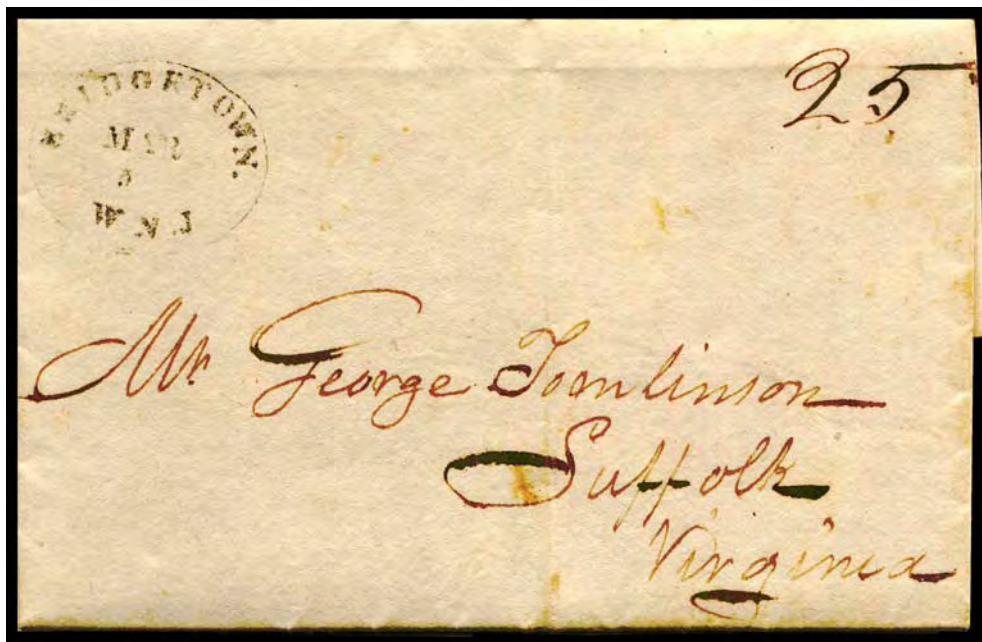 BRIDGETOWN.
MAR
5
W.N.J.
25
Mr George Tomlinson
Suffolk
Virginia